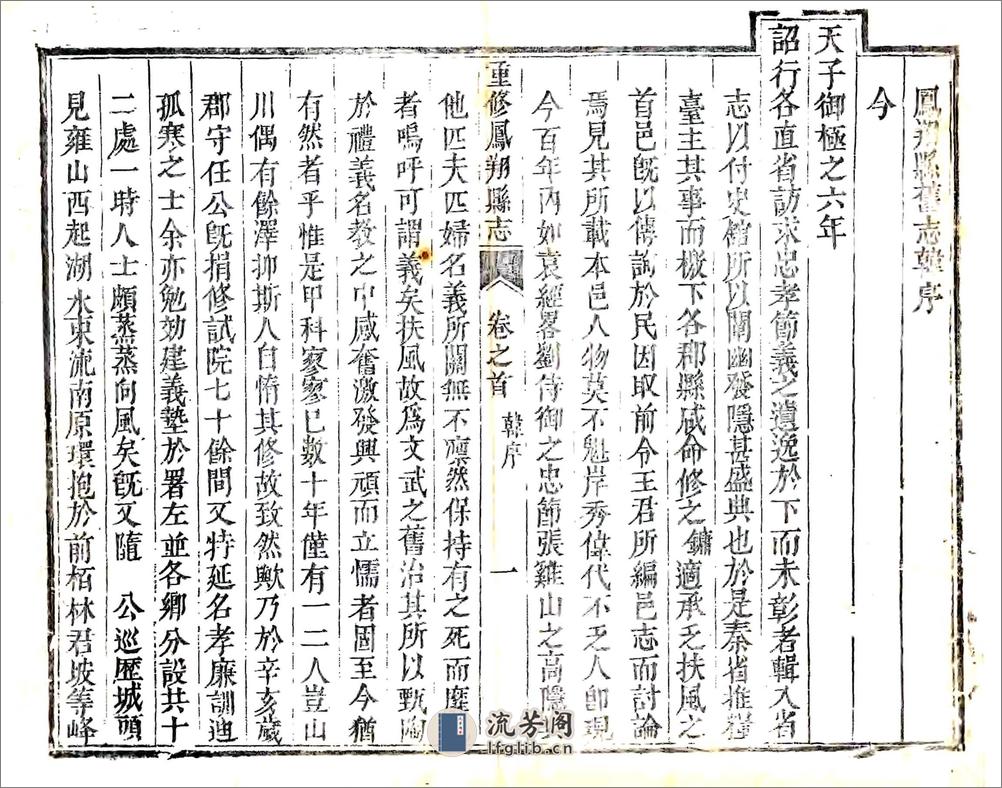 鳳翔縣舊志韓序
今
天子御極之六年
詔行各直省訪求忠孝節義之遺逸於下而未彰者輯入省
志以付史館所以闡幽發隱甚盛典也於是秦省推糧
臺主其事而檄下各郡縣咸命修之鏞適承乏扶風之
首邑旣以傳詢於民因取前令王君所編邑志而討論
焉見其所載本邑人物莫不魁岸秀偉代不乏人卽現
今百年內如袁經畧劉侍御之忠節張雞山之高隱
重修鳳翔縣志 卷之首 韓序 一
他匹夫匹婦名義所關無不凛然保持有之死而靡
者嗚呼可謂義矣扶風故爲文武之舊治其所以甄陶
於禮義名教之中感奮激發興頑而立懦者固至今猶
有然者乎惟是甲科寥寥已數十年僅有一二人豈山
川偶有餘澤抑斯人自惰其修故致然歟乃於辛亥歲
郡守任公旣捐修試院七十餘間又特延名孝廉訓迪
孤寒之士余亦勉効建義塾於署左並各鄉分設共十
二處一時人士頗蒸蒸向風矣旣又隨 公巡歷城頭
見雍山西起湖水東流南原環抱於前栢林君坡等峰
流芳阁
lfglib.cn